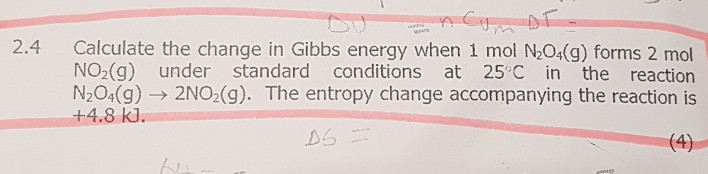 ΔU = n Cv,m ΔT =
2.4 Calculate the change in Gibbs energy when 1 mol N₂O₄(g) forms 2 mol
NO₂(g) under standard conditions at 25°C in the reaction
N₂O₄(g) → 2NO₂(g). The entropy change accompanying the reaction is
+4.8 kJ.
(4)
ΔS =